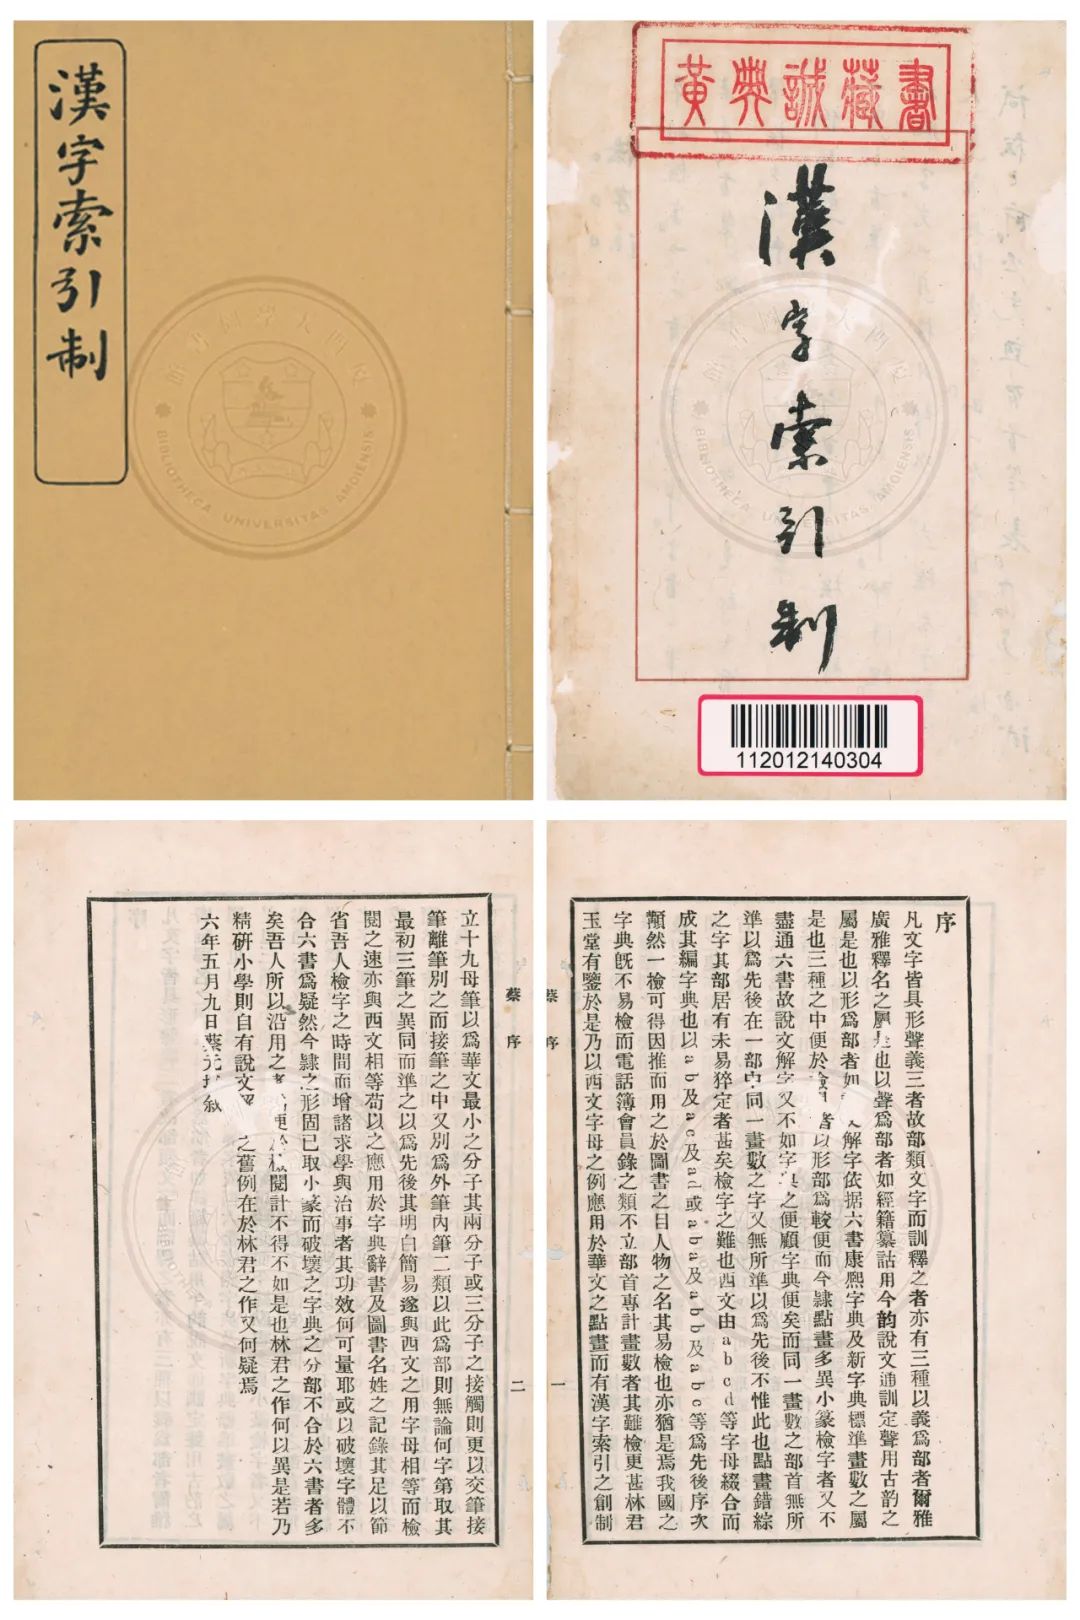 漢字索引制
黃典誠藏書
漢字索引制
112012140304
序
凡文字皆具形聲義三者故部類文字而訓釋之者亦有三種以義爲部者爾雅
廣雅釋名之屬是也以聲爲部者如經籍纂詁用今韵說文通訓定聲用古韵之
屬是也以形爲部者如 解字依据六書康熙字典及新字典標準畫數之屬
是也三種之中便於檢 者以形部爲較便而今隸點畫多異小篆檢字者又不
盡通六書故說文解字又不如字典之便顧字典便矣而同一畫數之部首無所
準以爲先後在一部中同一畫數之字又無所準以爲先後不惟此也點畫錯綜
之字其部居有未易猝定者甚矣檢字之難也西文由abcd等字母綴合而
成其編字典也以ab及ac及ad或aba及abb及abc等爲先後序次
顯然一檢可得因推而用之於圖書之目人物之名其易檢也亦猶是焉我國之
字典旣不易檢而電話簿會員錄之類不立部首專計畫數者其難檢更甚林君
玉堂有鑒於是乃以西文字母之例應用於華文之點畫而有漢字索引之創制
蔡序
一
蔡序
二
立十九母筆以爲華文最小之分子其兩分子或三分子之接觸則更以交筆接
筆離筆別之而接筆之中又別爲外筆內筆二類以此爲部則無論何字第取其
最初三筆之異同而準之以爲先後其明白簡易遂與西文之用字母相等而檢
閱之速亦與西文相等苟以之應用於字典辭書及圖書名姓之記錄其足以節
省吾人檢字之時間而增諸求學與治事者其功效何可量耶或以破壞字體不
合六書爲疑然今隸之形固已取小篆而破壞之字典之分部不合於六書者多
矣吾人所以沿用之者 便於檢閱計不得不如是也林君之作何以異是若乃
精研小學則自有說文 之舊例在於林君之作又何疑焉
六年五月九日蔡元 敍
BIBLIOTHECA UNIVERSITAS AMOIENSIS